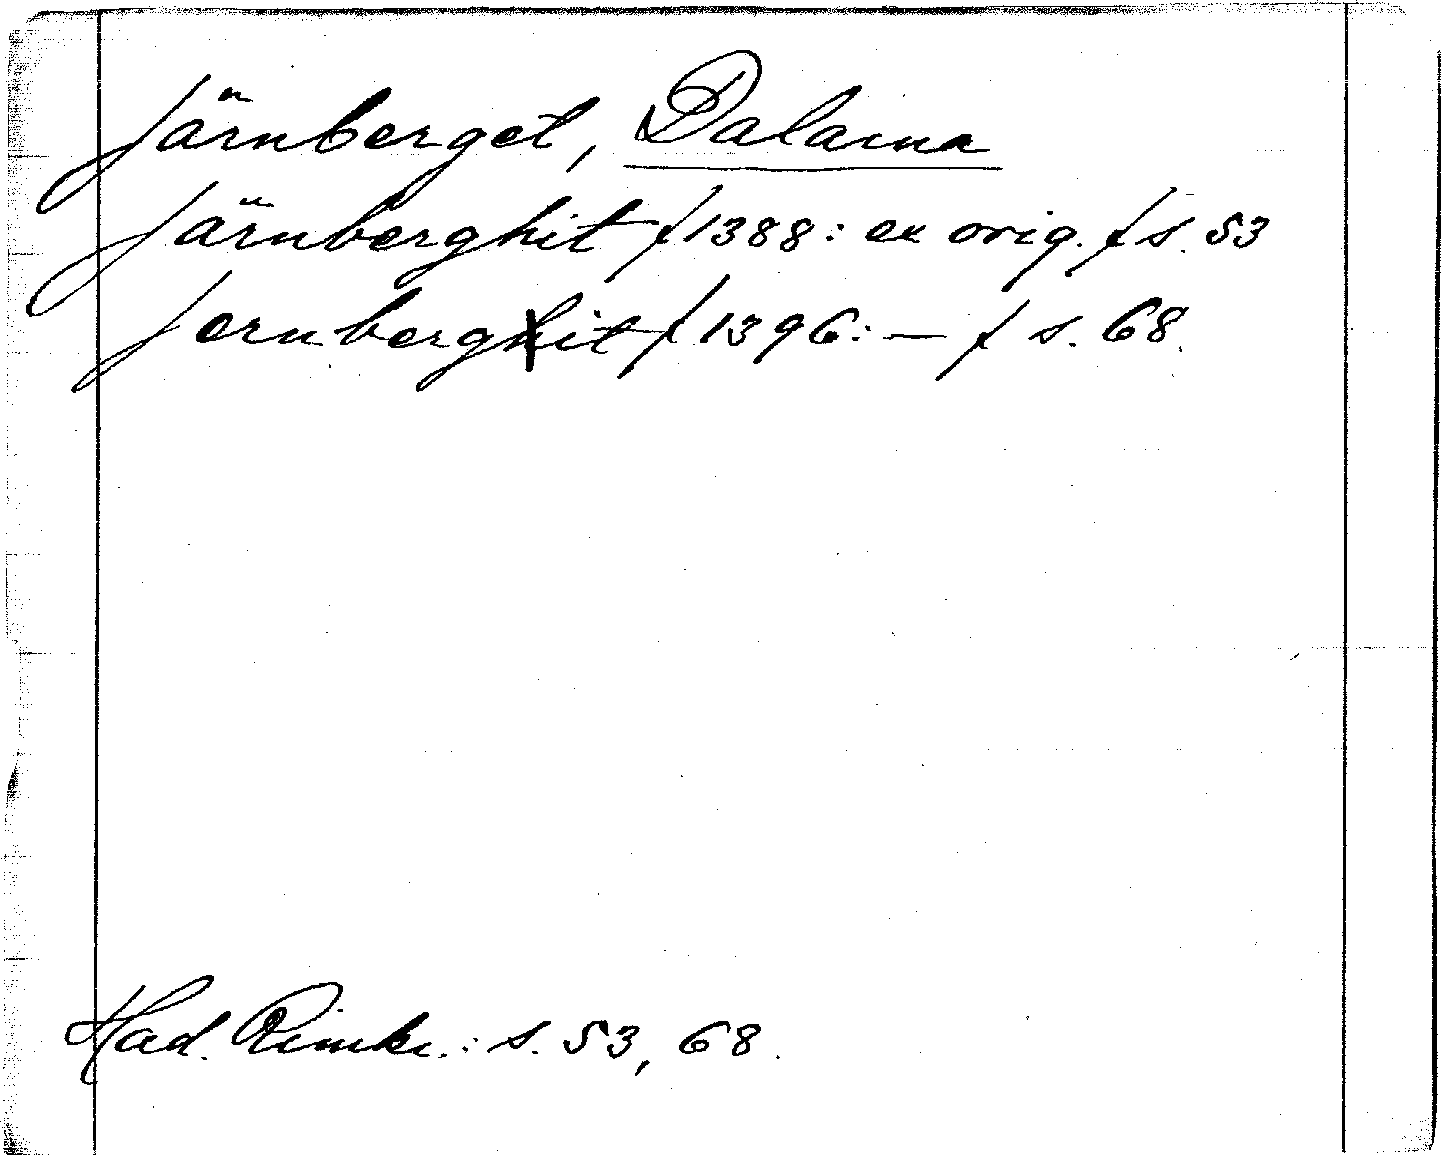 Järnberget, Dalarna
Järnberghit /1388: ex orig./ s. 53
Jernberghit /1396: — / s. 68.
Had. Rimkr.: s. 53, 68.